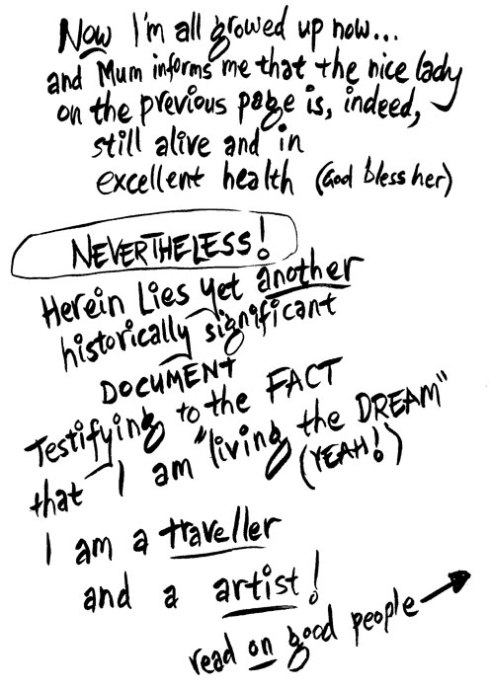 Now I'm all growed up now...
and Mum informs me that the nice lady
on the previous page is, indeed,
still alive and in
excellent health (God bless her)
NEVERTHELESS!
Herein Lies yet another
historically significant
DOCUMENT
Testifying to the FACT
that I am "living the DREAM"
(YEAH!)
I am a traveller
and a artist!
read on good people